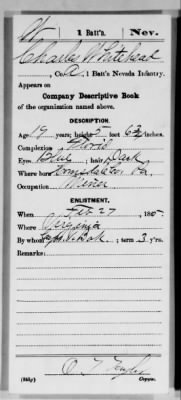 W 1 Batt'n. Nev.
Charles Whitehead
, Co. , 1 Batt'n Nevada Infantry.
Appears on
Company Descriptive Book
of the organization named above.
DESCRIPTION.
Age 19 years; height 5 feet 6½ inches.
Complexion Florid
Eyes Blue ; hair Dark
Where born Pa
Occupation Miner
ENLISTMENT.
When Feb 27 , 186 .
Where Virginia
By whom ; term 3 y'rs.
Remarks:
Copyist.